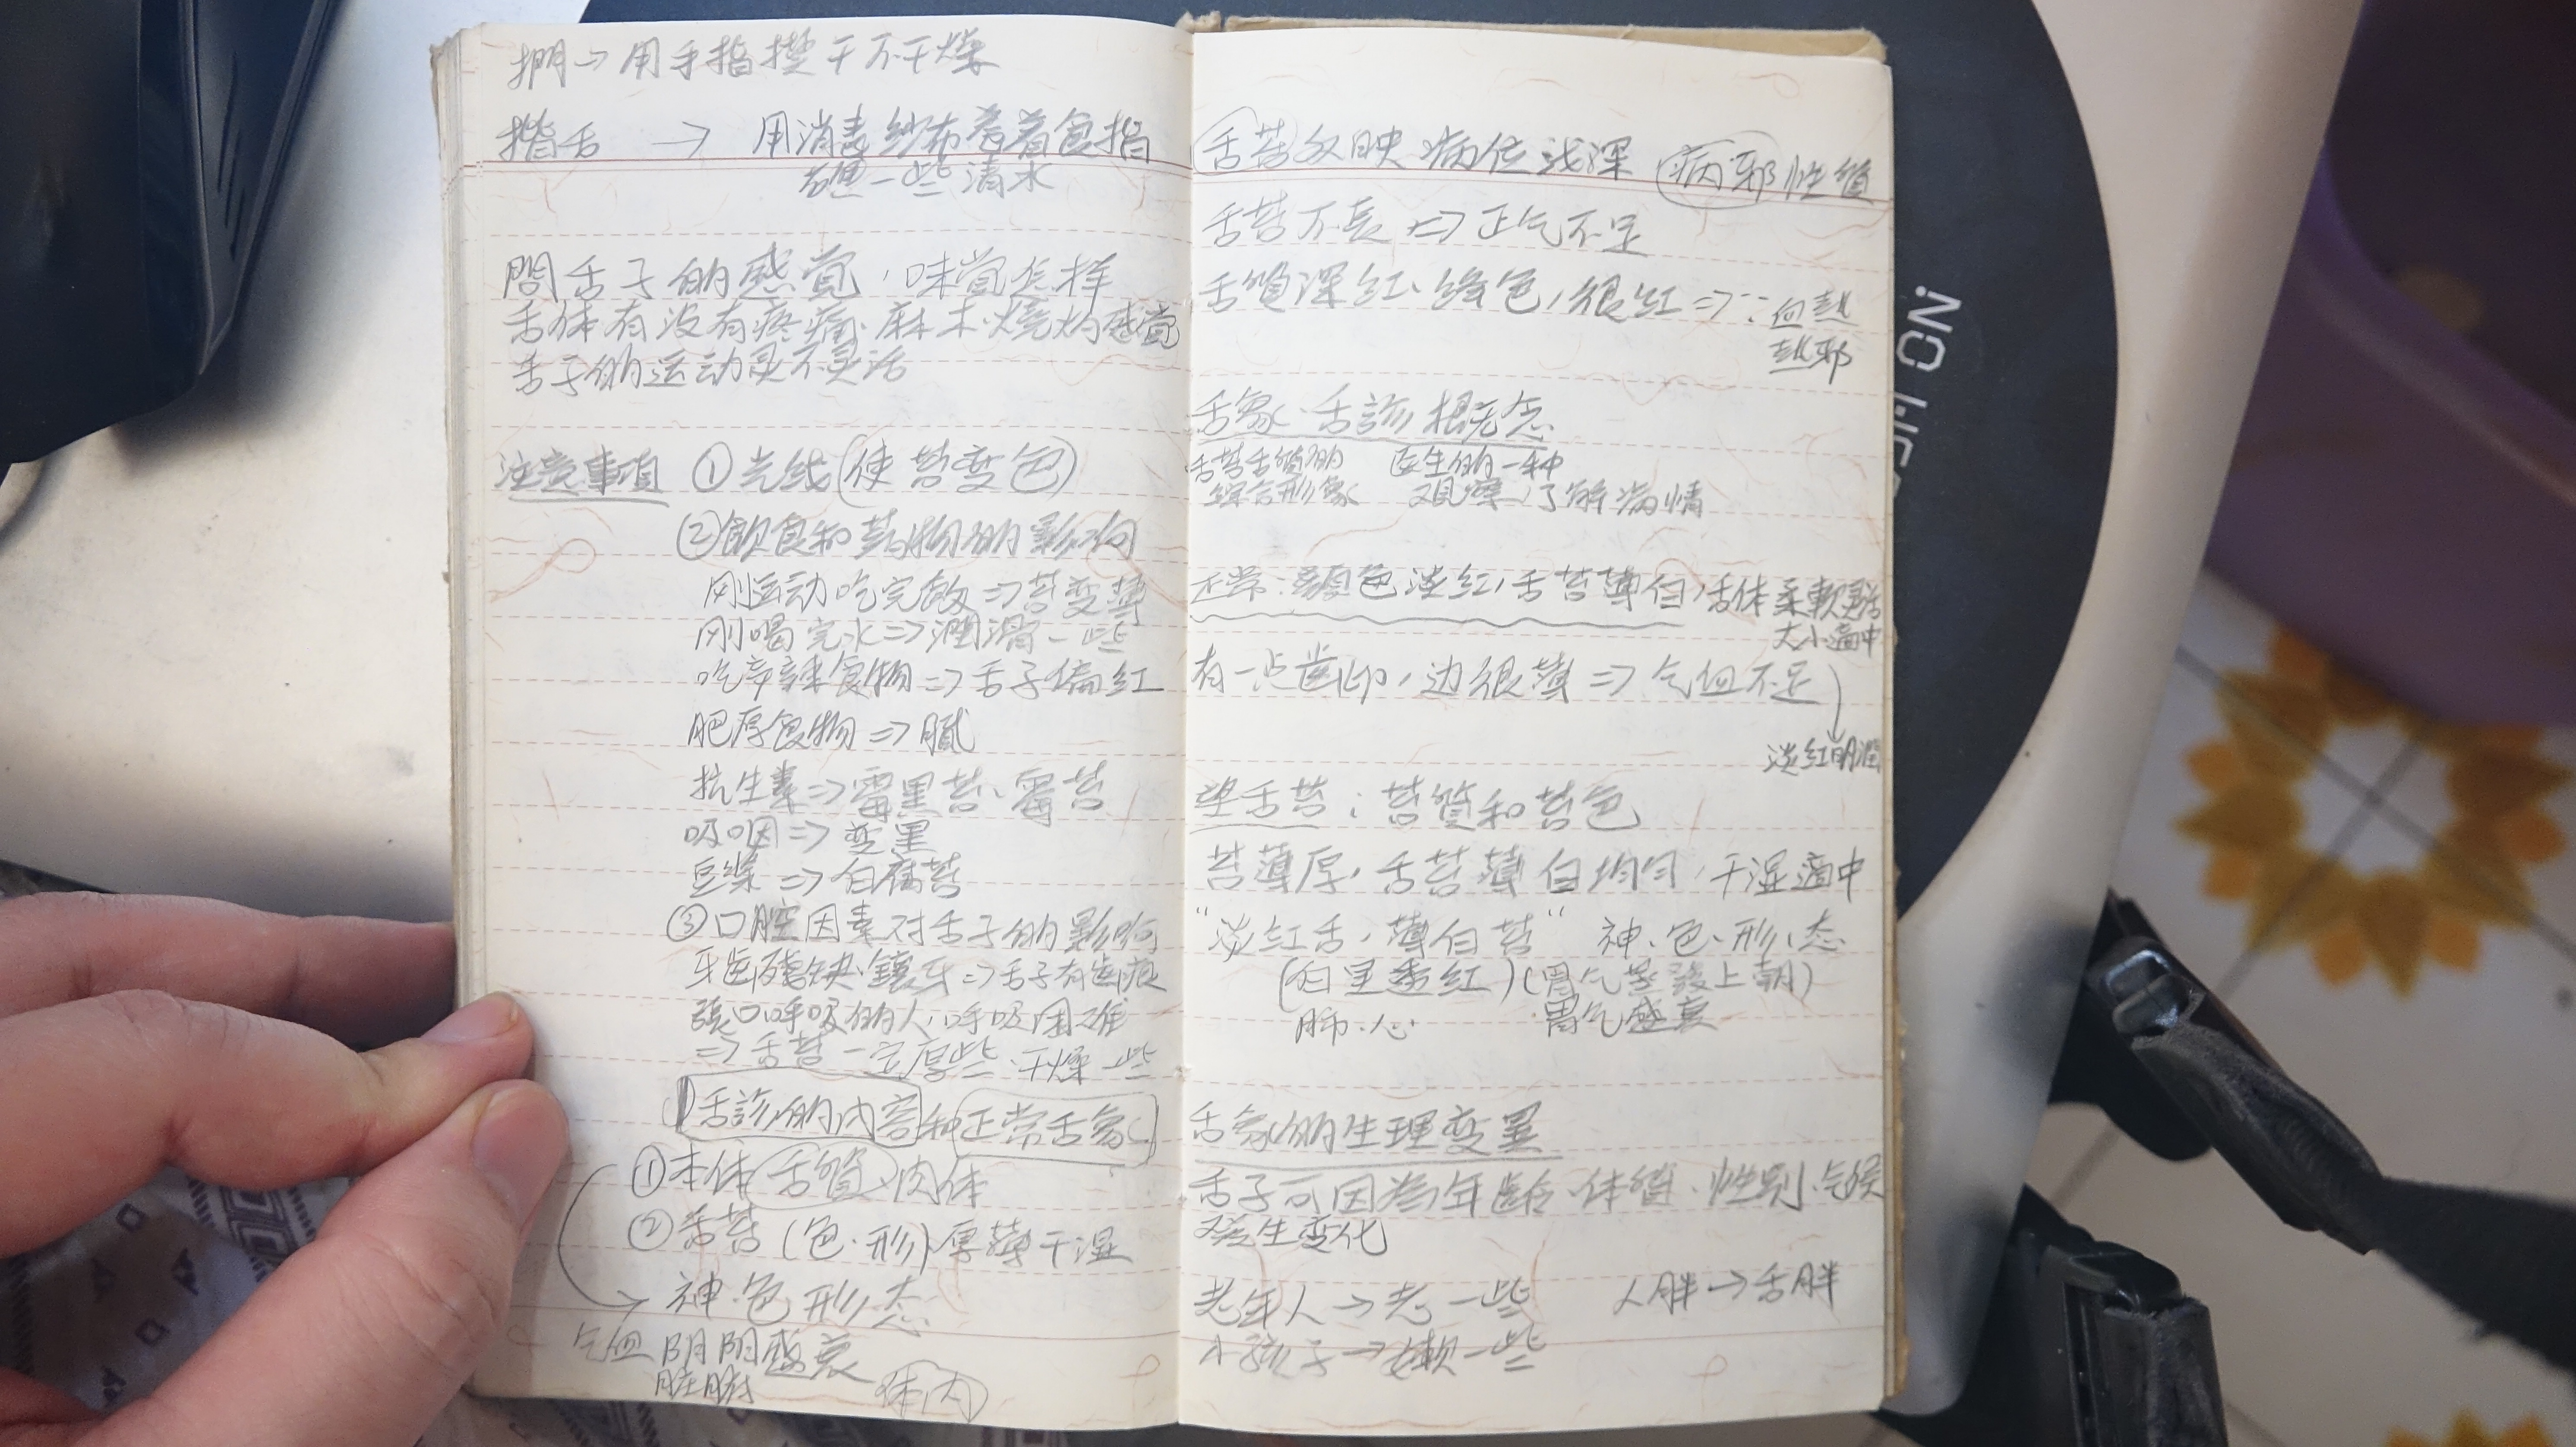 捫→用手指摸干不干燥
揩舌 → 用消毒紗布卷着食指
蘸一些清水
問舌子的感覚,味覚怎样
舌体有没有疼痛、麻木、燒灼感覚
舌子的运动灵不灵活
注意事項 ①光线(使苔变色)
②飲食和药物的影响
刚运动吃完飯⇒苔变薄
刚喝完水⇒潤滑一些
吃辛辣食物⇒舌子偏红
肥厚食物⇒膩
抗生素⇒霉黑苔、霉苔
吸咽⇒变黑
豆浆⇒白腐苔
③口腔因素对舌子的影响
牙齿残缺、鑲牙⇒舌子有齿痕
張口呼吸的人,呼吸困难
⇒舌苔一定厚些、干燥一些
舌診的内容和正常舌象
①本体(舌質)肉体
②舌苔(色、形)厚薄干湿
神、色、形、态
气血阴阳盛衰
脏腑 体内
舌苔反映病位浅深 病邪性質
舌苔不長⇒正气不足
舌質深红、绛色,很红⇒∵血热
热邪
舌象、舌診 概念
舌苔舌質的 医生的一种
綜合形象 观察,了解病情
正常:顏色淡红,舌苔薄白,舌体柔軟灵活
大小適中
有一点齿印,边很薄⇒气血不足
淡红明潤
望舌苔:苔質和苔色
苔薄厚,舌苔薄白均匀,干湿適中
“淡红舌,薄白苔” 神、色、形、态
(白里透红)(胃气蒸發上朝)
肺、心 胃气盛衰
舌象的生理变異
舌子可因為年齡、体質、性别、气候
發生变化
老年人→老一些 人胖→舌胖
小孩子→嫩一些